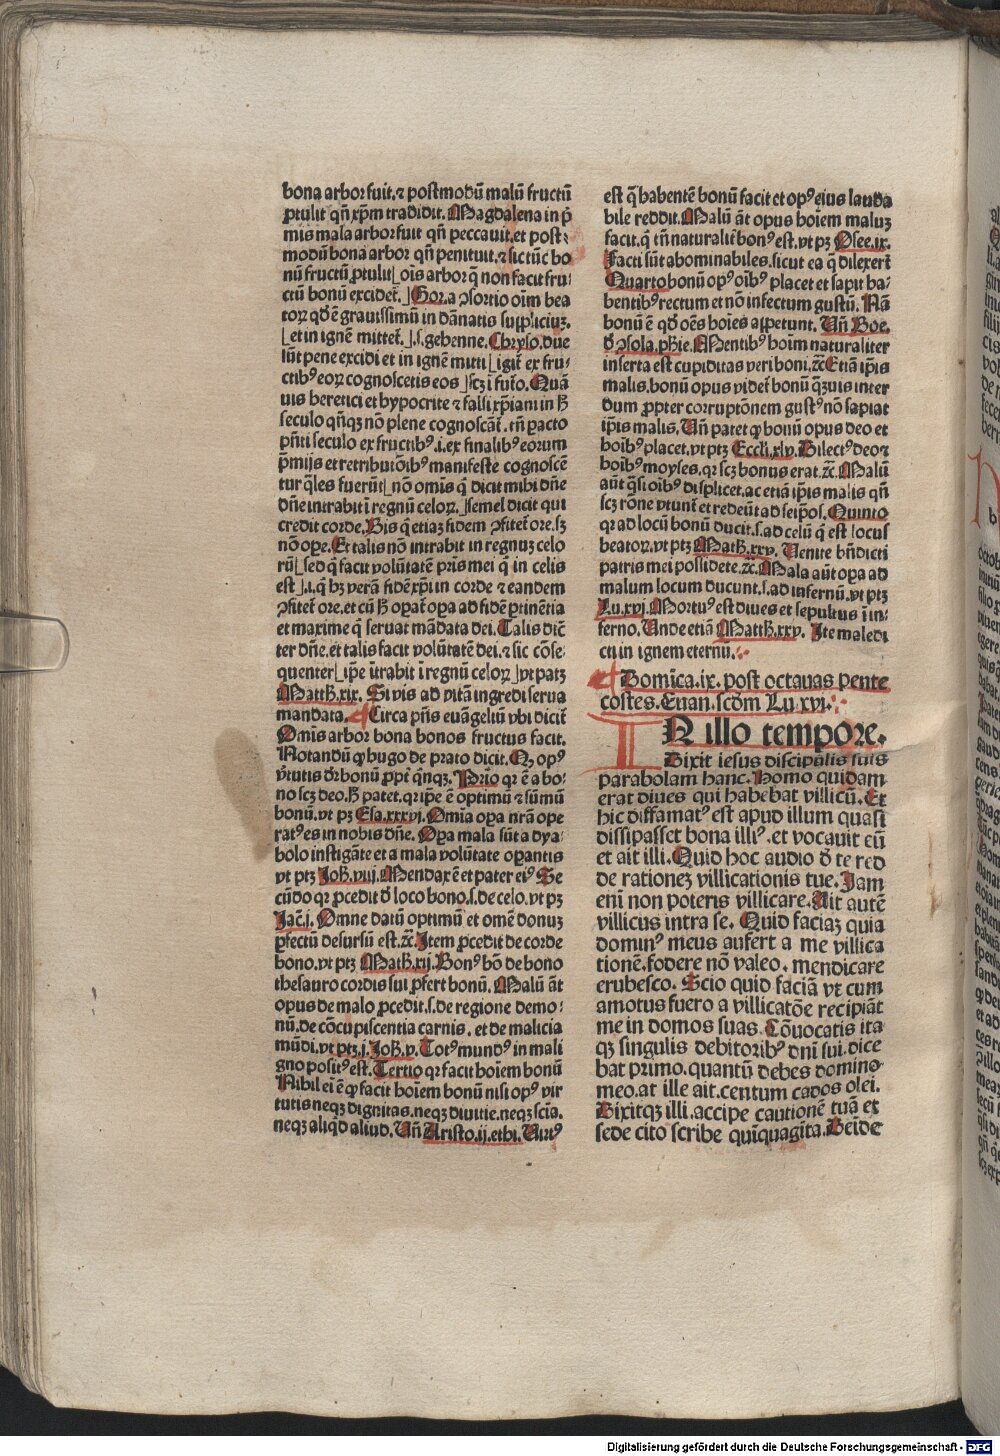 bona arbor fuit. ⁊ postmodū malū fructū
ꝓtulit qñ xp̄m tradidit. Magdalena in p̄
mis mala arbor fuit qñ peccauit. et post⸗
modū bona arbor qñ penituit. ⁊ sic tūc bo
nū fructū ꝓtulit ⌊ oīs arbor q̄ non facit fru⸗
ctū bonū excidet᷑. ⌋ Gor. a ꝯsortio oīm bea
toꝝ qd̄ ē grauissimū in dānatis suppliciuꝫ.
⌊ et in ignē mittet᷑. ⌋ .s. gehenne. Chryso. due
sūt pene excidi et in ignē mitti ⌊ igit᷑ ex fru⸗
ctibꝰ eoꝝ cognoscetis eos ⌋ scꝫ ī fut᷑o. Quā
uis heretici et hypocrite ⁊ falsi xp̄iani in ħ
seculo qñqꝫ nō plene cognoscāt᷑. tñ pacto
pñti seculo ex fructibꝰ .i. ex finalibꝰ eorum
p̄mijs et retributōibꝰ manifeste cognoscē
tur q̄les fuerūt ⌊ nō omīs q̄ dicit mihi dñe
dñe intrabit ī regnū celoꝝ. ⌋ semel dicit qui
credit corde. Bis q̄ etiaꝫ fidem ꝯfitet᷑ ore. sꝫ
nō oꝑe. Et talis nō intrabit in regnuꝫ celo
rū ⌊ sed q̄ facit volūtatē pris mei q̄ in celis
est ⌋ .i. q̄ hꝫ verā fidē xp̄i in corde ⁊ eandem
ꝯfitet᷑ ore. et cū ħ oꝑat᷑ oꝑa ad fidē ꝑtinētia
et maxime q̄ seruat mādata dei. Talis dic̄
ter dñe. et talis facit volūtatē dei. ⁊ sic cōse⸗
quenter ⌊ ip̄e ītrabit ī regnū celoꝝ ⌋ vt patꝫ
Matth. xix. Si vis ad vitā ingredi serua
mandata. ¶ Circa pñs euāgeliū vbi dicit᷑
Omīs arbor bona bonos fructus facit.
Notandū ꝙ hugo de prato dicit. Qꝫ opꝰ
v̓tutis dr̄ bonū ꝓpt᷑ qnqꝫ. Prīo qr ē a bo⸗
no scꝫ deo. ħ patet. qr ip̄e ē optimū ⁊ sūmū
bonū. vt pꝫ Esa. xxxvi. Omīa oꝑa nr̄a ope
ratꝰ es in nobis dñe. Oꝑa mala sūt a dya⸗
bolo instigāte et a mala volūtate oꝑantis
vt ptꝫ Joh̄. viij. Mendax ē et pater eiꝰ Se
cūdo qr ꝓcedit d̓ loco bono .s. de celo. vt pꝫ
Jac̄. i. Omne datū optimū et omē donuꝫ
ꝑfectū desursū est. ꝛc̄. Item ꝓcedit de corde
bono. vt ptꝫ Math̄. xij. Bonꝰ hō de bono
thesauro cordis sui ꝓfert bonū. Malū āt
opus de malo ꝓcedit .s. de regione demo⸗
nū. de cōcupiscentia carnis. et de malicia
mūdi. vt ptꝫ. i. Joh̄. v. Totꝰ mundꝰ in mali
gno positꝰ est. Tertio qr facit hoiem bonū
Nihil ei ē ꝙ facit hoiem bonū nisi opꝰ vir
tutis neqꝫ dignitas. neqꝫ diuitie. neqꝫ scīa.
neqꝫ aliqd aliud. Uñ Aristo. ij. ethi. Uirtꝰ
est q̄ habentē bonū facit et opꝰ eius lauda
bile reddit. Malū āt opus hoiem maluꝫ
facit. q̄ tñ naturalit᷑ bonꝰ est. vt pꝫ Osee. ix.
Facti sūt abominabiles. sicut ea q̄ dilexer̄t
Quarto bonū opꝰ oībꝰ placet et sapit ha⸗
bentibꝰ rectum et nō infectum gustū. Nā
bonū ē qd̄ oēs hoīes appetunt. Uñ Boe.
d̓ ꝯsola. ph̄ie. Mentibꝰ hoīm naturaliter
inserta est cupiditas veri boni. ꝛc̄. Etiā ip̄is
malis. bonū opus videt᷑ bonū qꝫuis inter
dum ꝓpter corruptōnem gustꝰ nō sapiat
ip̄is malis. Uñ patet ꝙ bonū opus deo et
hoībꝰ placet. vt ptꝫ Eccli. xlv. Dilectꝰ deo ⁊
hoībꝰ moyses. qr scꝫ bonus erat. ꝛc̄. Malū
aūt q̄si oībꝰ displicet. ac etiā ip̄is malis qñ
scꝫ rōne vtunt᷑ et redeūt ad seip̄os. Quinto
qr ad locū bonū ducit .s. ad celū q̄ est locus
beatoꝝ. vt ptꝫ Math̄. xxv. Uenite bñdicti
patris mei possidete. ꝛc̄. Mala aūt oꝑa ad
malum locum ducunt .s. ad infernū. vt ptꝫ
Lu. xvj. Mortuꝰ est diues et sepultus ī in⸗
ferno. Unde etiā Matth. xxv. Ite maledi
cti in ignem eternū.
¶ Domīca. ix. post octauas pente
costes. Euan. scd̄m Lu. xvi.
IN illo tempore.
Dixit iesus discipulis suis
parabolam hanc. Homo quidam
erat diues qui habebat villicū. Et
hic diffamatꝰ est apud illum quasi
dissipasset bona illiꝰ. et vocauit eū
et ait illi. Quid hoc audio d̓ te red
de rationeꝫ villicationis tue. Iam
enī non poteris villicare. Ait autē
villicus intra se. Quid faciaꝫ quia
dominꝰ meus aufert a me villica
tionē. fodere nō valeo. mendicare
erubesco. Scio quid faciā vt cum
amotus fuero a villicatōe recipiāt
me in domos suas. Cōuocatis ita
qꝫ singulis debitoribꝰ dnī sui. dice
bat primo. quantū debes domino
meo. at ille ait. centum cados olei.
Dixitqꝫ illi. accipe cautionē tuā et
sede cito scribe quīquagīta. Deīde
Digitalisierung gefördert durch die Deutsche Forschungsgemeinschaft - DFG